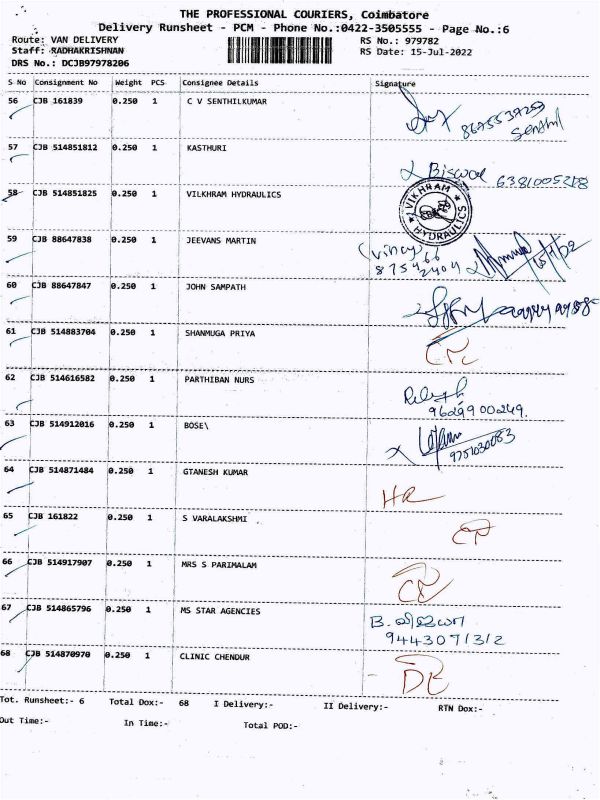 THE PROFESSIONAL COURIERS, Coimbatore
Delivery Runsheet - PCM - Phone No.:0422-3505555 - Page No.:6
Route: VAN DELIVERY RS No.: 979782
Staff: RADHAKRISHNAN RS Date: 15-Jul-2022
DRS No.: DCJB97978206
S No Consignment No Weight PCS Consignee Details Signature
56 CJB 161839 0.250 1 C V SENTHILKUMAR
8675537259
Senthil
57 CJB 514851812 0.250 1 KASTHURI
Biswa
6381005218
58 CJB 514851825 0.250 1 VILKHRAM HYDRAULICS
VIKHRAM HYDRAULICS
59 CJB 88647838 0.250 1 JEEVANS MARTIN
(Vinay)
60 CJB 88647847 0.250 1 JOHN SAMPATH
61 CJB 514883704 0.250 1 SHANMUGA PRIYA
62 CJB 514616582 0.250 1 PARTHIBAN NURS
9629900249.
63 CJB 514912016 0.250 1 BOSE\
9751030083
64 CJB 514871484 0.250 1 GTANESH KUMAR
HR
65 CJB 161822 0.250 1 S VARALAKSHMI
66 CJB 514917907 0.250 1 MRS S PARIMALAM
67 CJB 514865796 0.250 1 MS STAR AGENCIES
B. விஜயா
9443071312
68 CJB 514870970 0.250 1 CLINIC CHENDUR
DR
Tot. Runsheet:- 6 Total Dox:- 68 I Delivery:- II Delivery:- RTN Dox:-
Out Time:- In Time:- Total POD:-